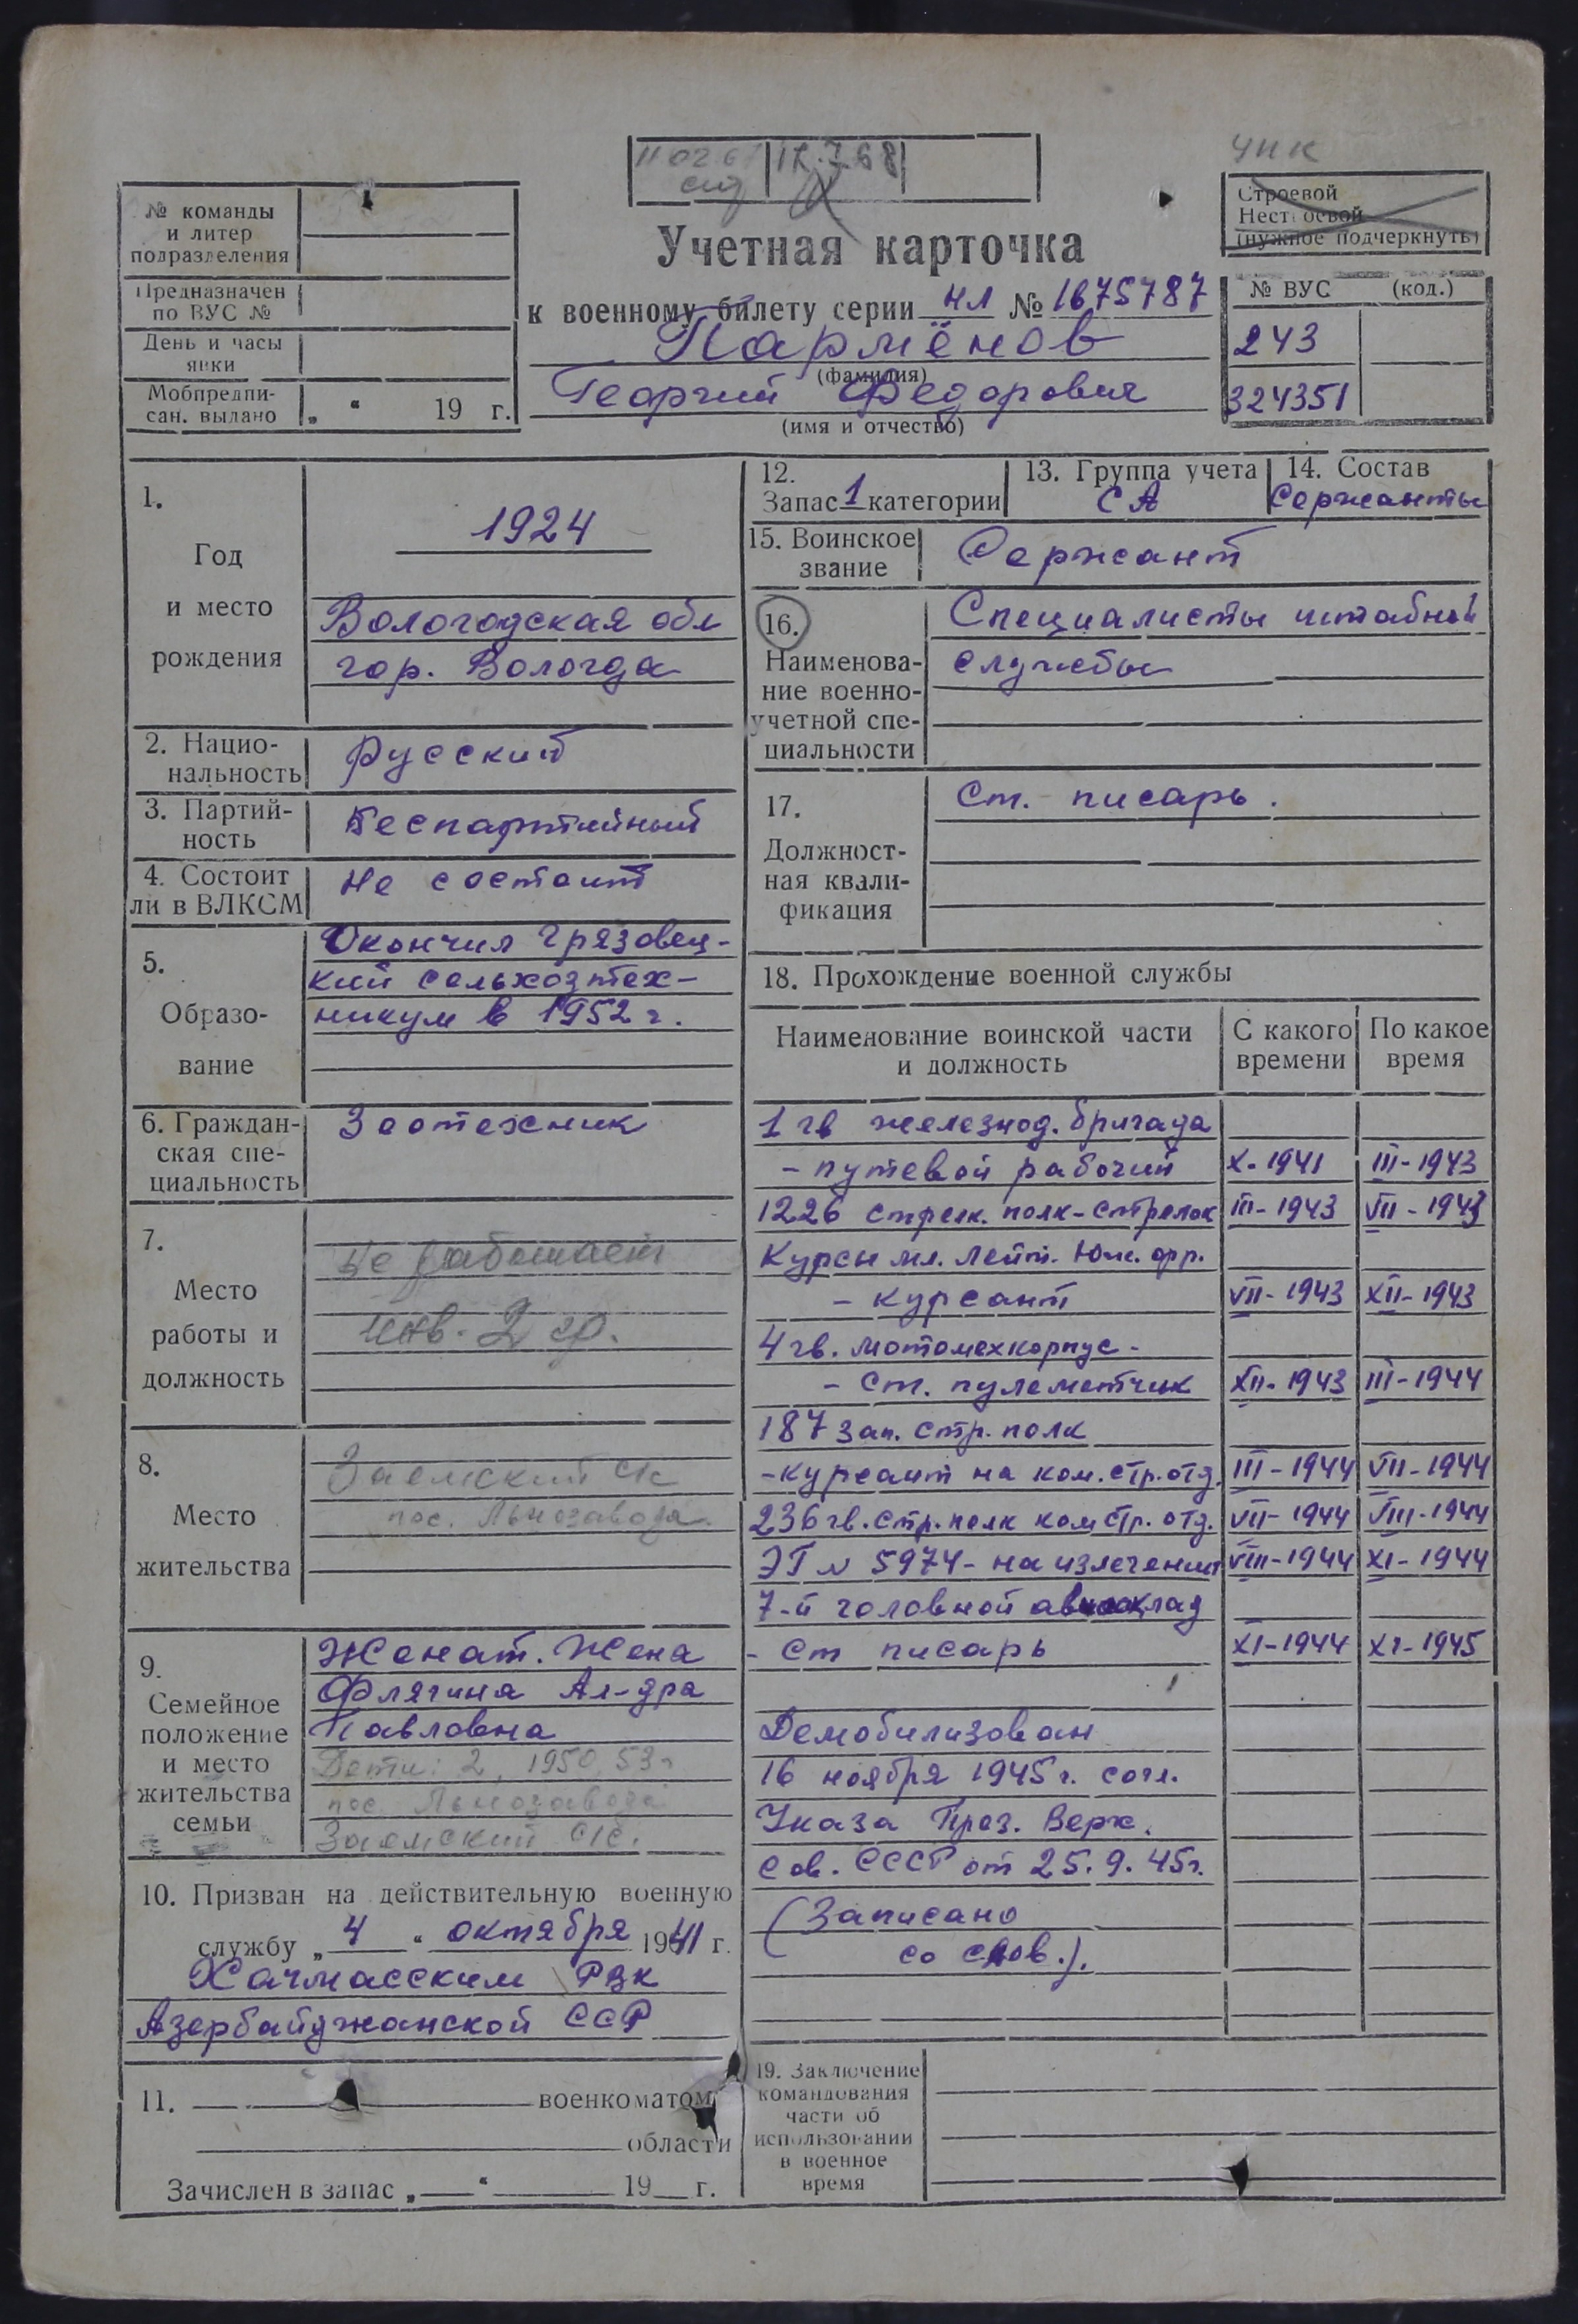 УПК
12.7.68
№ команды
и литер
подразделения
Предназначен
по ВУС №
День и часы
явки
Мобпредпи-
сан. выдано „ “ 19 г.
Учетная карточка
к военному билету серии НЛ № 1675787
Пармёнов
(фамилия)
Георгий Федорович
(имя и отчество)
Строевой
Нестроевой
(нужное подчеркнуть)
№ ВУС (код.)
243
324351
1.
Год
и место
рождения
1924
Вологодская обл
гор. Вологда
2. Нацио-
нальность
Русский
3. Партий-
ность
Беспартийный
4. Состоит
ли в ВЛКСМ
Не состоит
5.
Образо-
вание
Окончил Грязовец-
кий сельхозтех-
никум в 1952 г.
6. Граждан-
ская спе-
циальность
Зоотехник
7.
Место
работы и
должность
Не работает
инв. 2 гр.
8.
Место
жительства
Заемский с/с
пос. Льнозавода
9.
Семейное
положение
и место
жительства
семьи
Женат. Жена
Флягина Ал-дра
Павловна
Дети: 2, 1950, 53г
пос. Льнозавода
Заемский с/с.
10. Призван на действительную военную
службу „ 4 “ октября 1941 г.
Хачмасским РВК
Азербайджанской ССР
11. военкоматом
области
Зачислен в запас „ “ 19 г.
12.
Запас 1 категории
13. Группа учета
СА
14. Состав
Сержанты
15. Воинское
звание
Сержант
16.
Наименова-
ние военно-
учетной спе-
циальности
Специалисты штабной
службы
17.
Должност-
ная квали-
фикация
Ст. писарь.
18. Прохождение военной службы
Наименование воинской части
и должность
С какого
времени
По какое
время
1 гв железнод. бригада
- путевой рабочий X-1941 III-1943
1226 стрелк. полк-стрелок III-1943 VII-1943
Курсы мл. лейт. Юж. фр.
- курсант VII-1943 XII-1943
4 гв. мотомехкорпус -
- ст. пулеметчик XII-1943 III-1944
187 зап. стр. полк
- курсант на ком. стр. отд. III-1944 VII-1944
236 гв. стр. полк ком стр. отд. VII-1944 VIII-1944
ЭГ № 5974- на излечении VIII-1944 XI-1944
7-й головной авиасклад
- Ст писарь XI-1944 XI-1945
Демобилизован
16 ноября 1945 г. согл.
Указа През. Верх.
Сов. СССР от 25.9.45г.
(Записано
со слов.).
19. Заключение
командования
части об
использовании
в военное
время